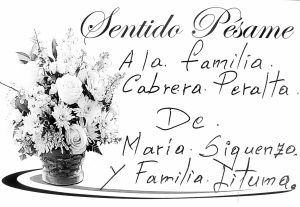 Sentido Pésame
A la familia.
Cabrera Peralta.
De.
María Siguenza.
y Familia Iituma.